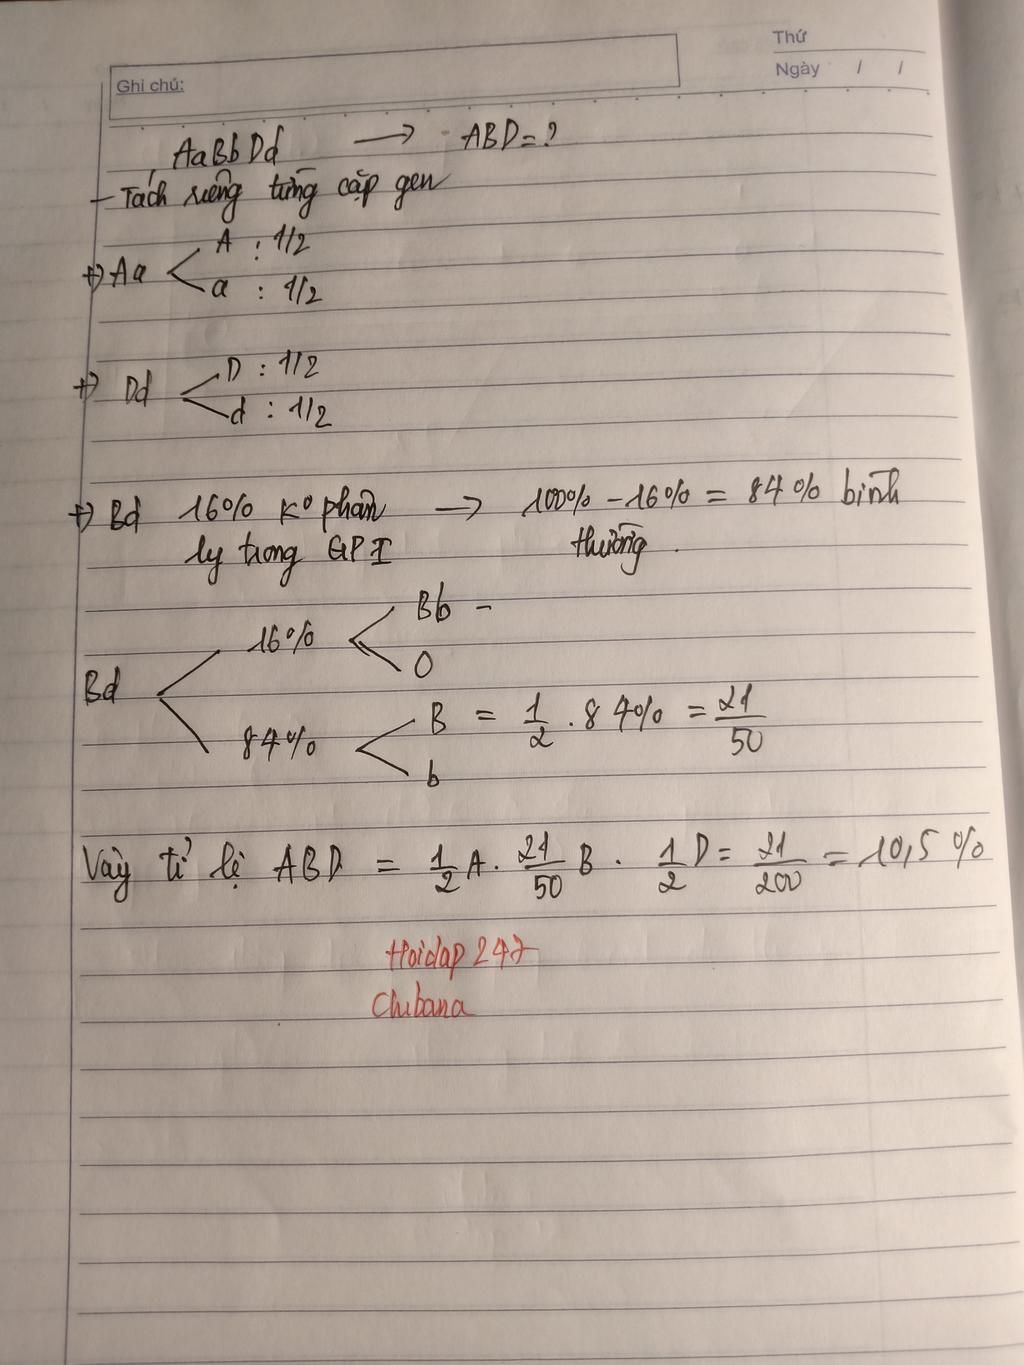 Thứ
Ghi chú:
Ngày / /
AaBbDd → ABD = ?
- Tách riêng từng cặp gen
+) Aa
A : 1/2
a : 1/2
+) Dd
D : 1/2
d : 1/2
+) Bd 16% Kº phân → 100% - 16% = 84% bình
ly trong GPI thường.
Bd
16%
Bb -
O
84%
B = 1/2 . 84% = 21/50
b
Vậy tỉ lệ ABD = 1/2 A . 21/50 B . 1/2 D = 21/200 = 10,5%
Hoidap 247
Chibana